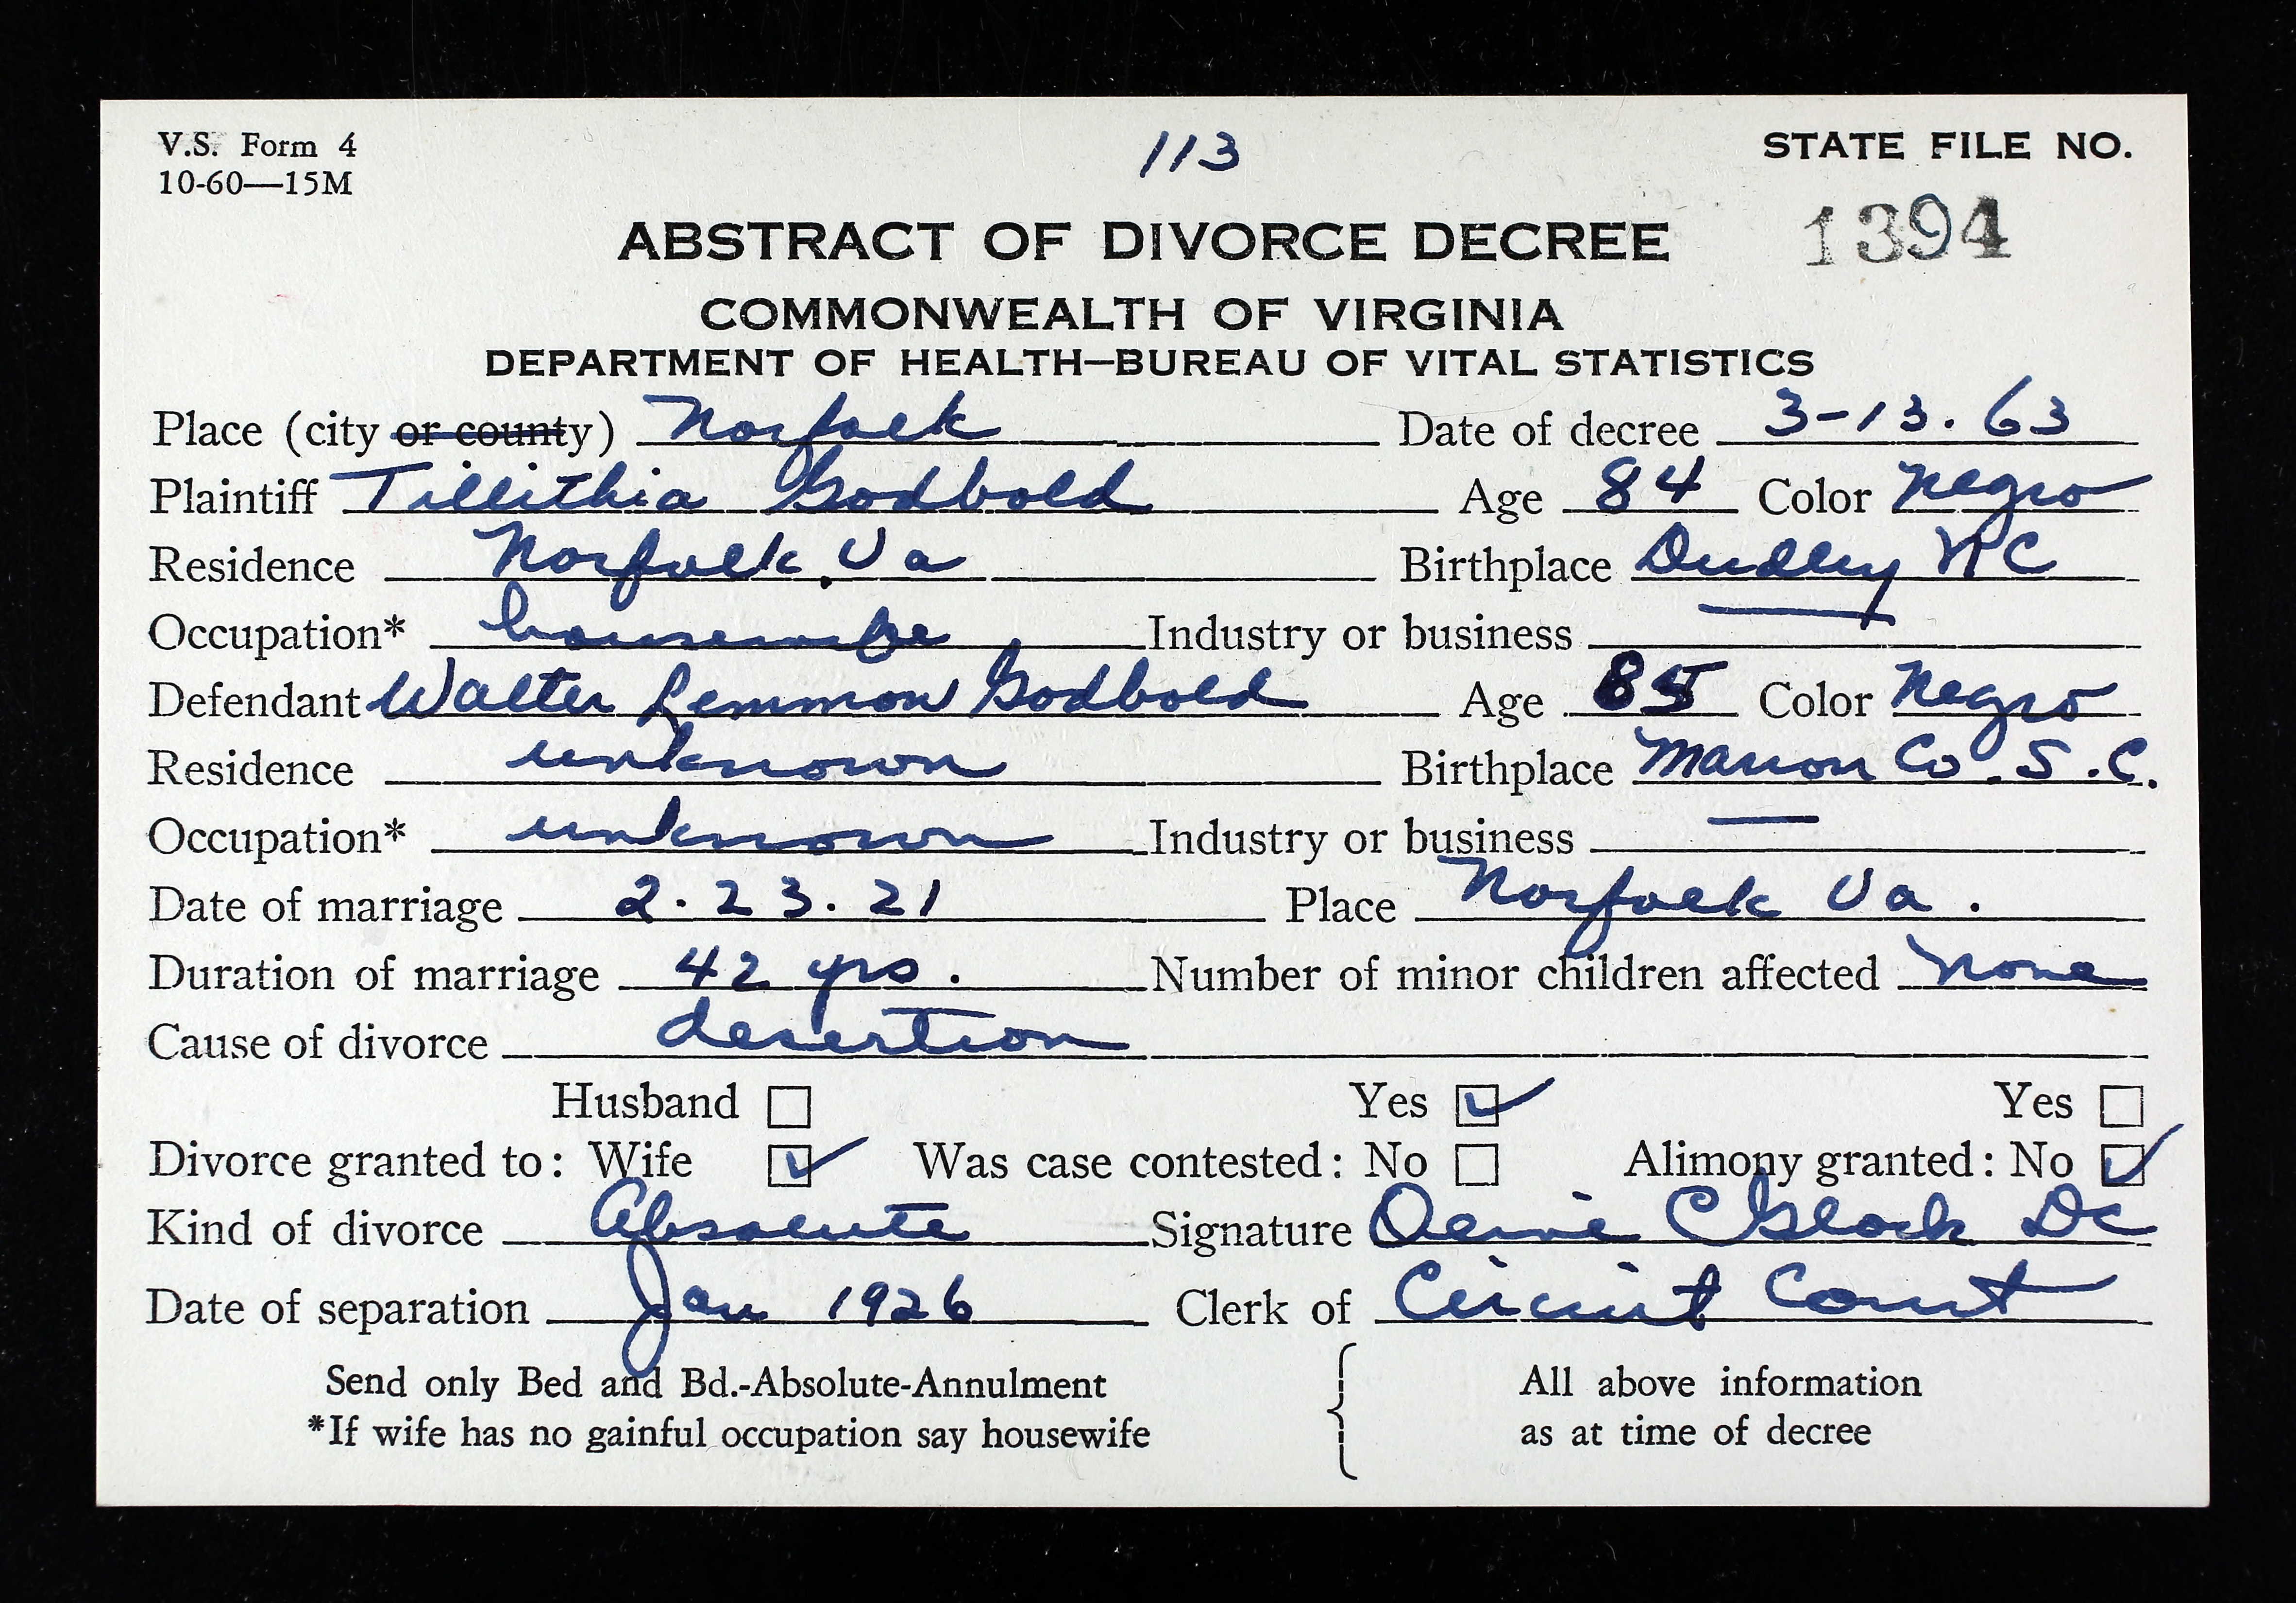 V.S. Form 4 113 STATE FILE NO.
10-60—15M
1394
ABSTRACT OF DIVORCE DECREE
COMMONWEALTH OF VIRGINIA
DEPARTMENT OF HEALTH—BUREAU OF VITAL STATISTICS
Place (city or county) Norfolk Date of decree 3-13.63
Plaintiff Tillithia Godbold Age 84 Color Negro
Residence Norfolk, Va Birthplace Dudley NC
Occupation* housewife Industry or business —
Defendant Walter Lemmon Godbold Age 85 Color Negro
Residence unknown Birthplace Marion Co. S.C.
Occupation* unknown Industry or business —
Date of marriage 2.23.21 Place Norfolk Va.
Duration of marriage 42 yrs. Number of minor children affected None
Cause of divorce desertion
Husband ☐ Yes ☑ Yes ☐
Divorce granted to: Wife ☑ Was case contested: No ☐ Alimony granted: No ☑
Kind of divorce Absolute Signature C Glock DC
Date of separation Jan 1926 Clerk of Circuit Court
Send only Bed and Bd.-Absolute-Annulment All above information
*If wife has no gainful occupation say housewife as at time of decree